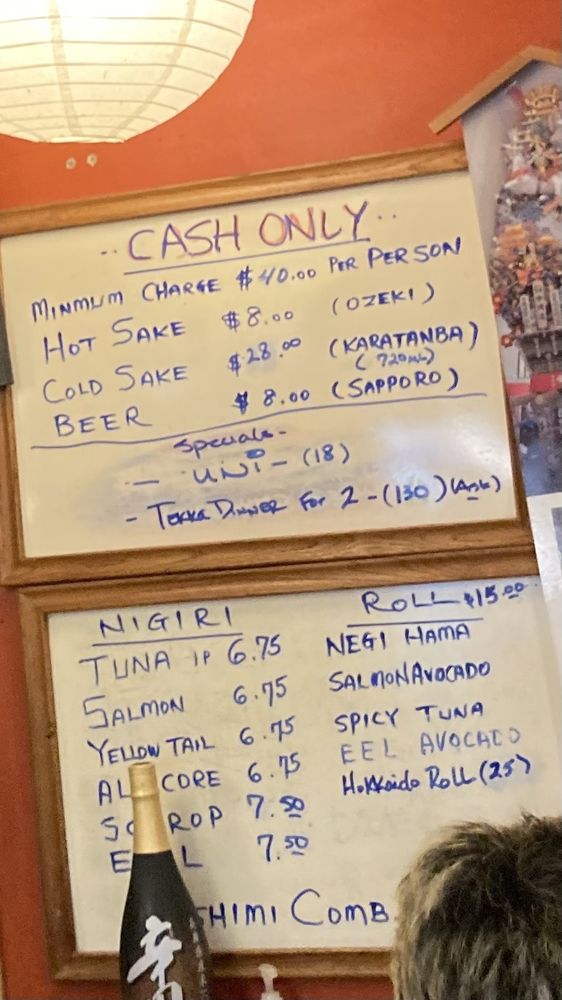 CASH ONLY
MINMUM CHARGE $40.00 PER PERSON
HOT SAKE $8.00 (OZEKI)
COLD SAKE $28.00 (KARATANBA)
(720ML)
BEER $8.00 (SAPPORO)
Specials-
- UNI - (18)
- TEKKA DINNER FOR 2 - (130) (Ask)
NIGIRI
TUNA 1P 6.75
SALMON 6.75
YELLOW TAIL 6.75
AL CORE 6.75
ROP 7.50
E L 7.50
SHIMI COMB
ROLL $15.00
NEGI HAMA
SALMON AVOCADO
SPICY TUNA
EEL AVOCADO
Hokkaido Roll (25)
辛